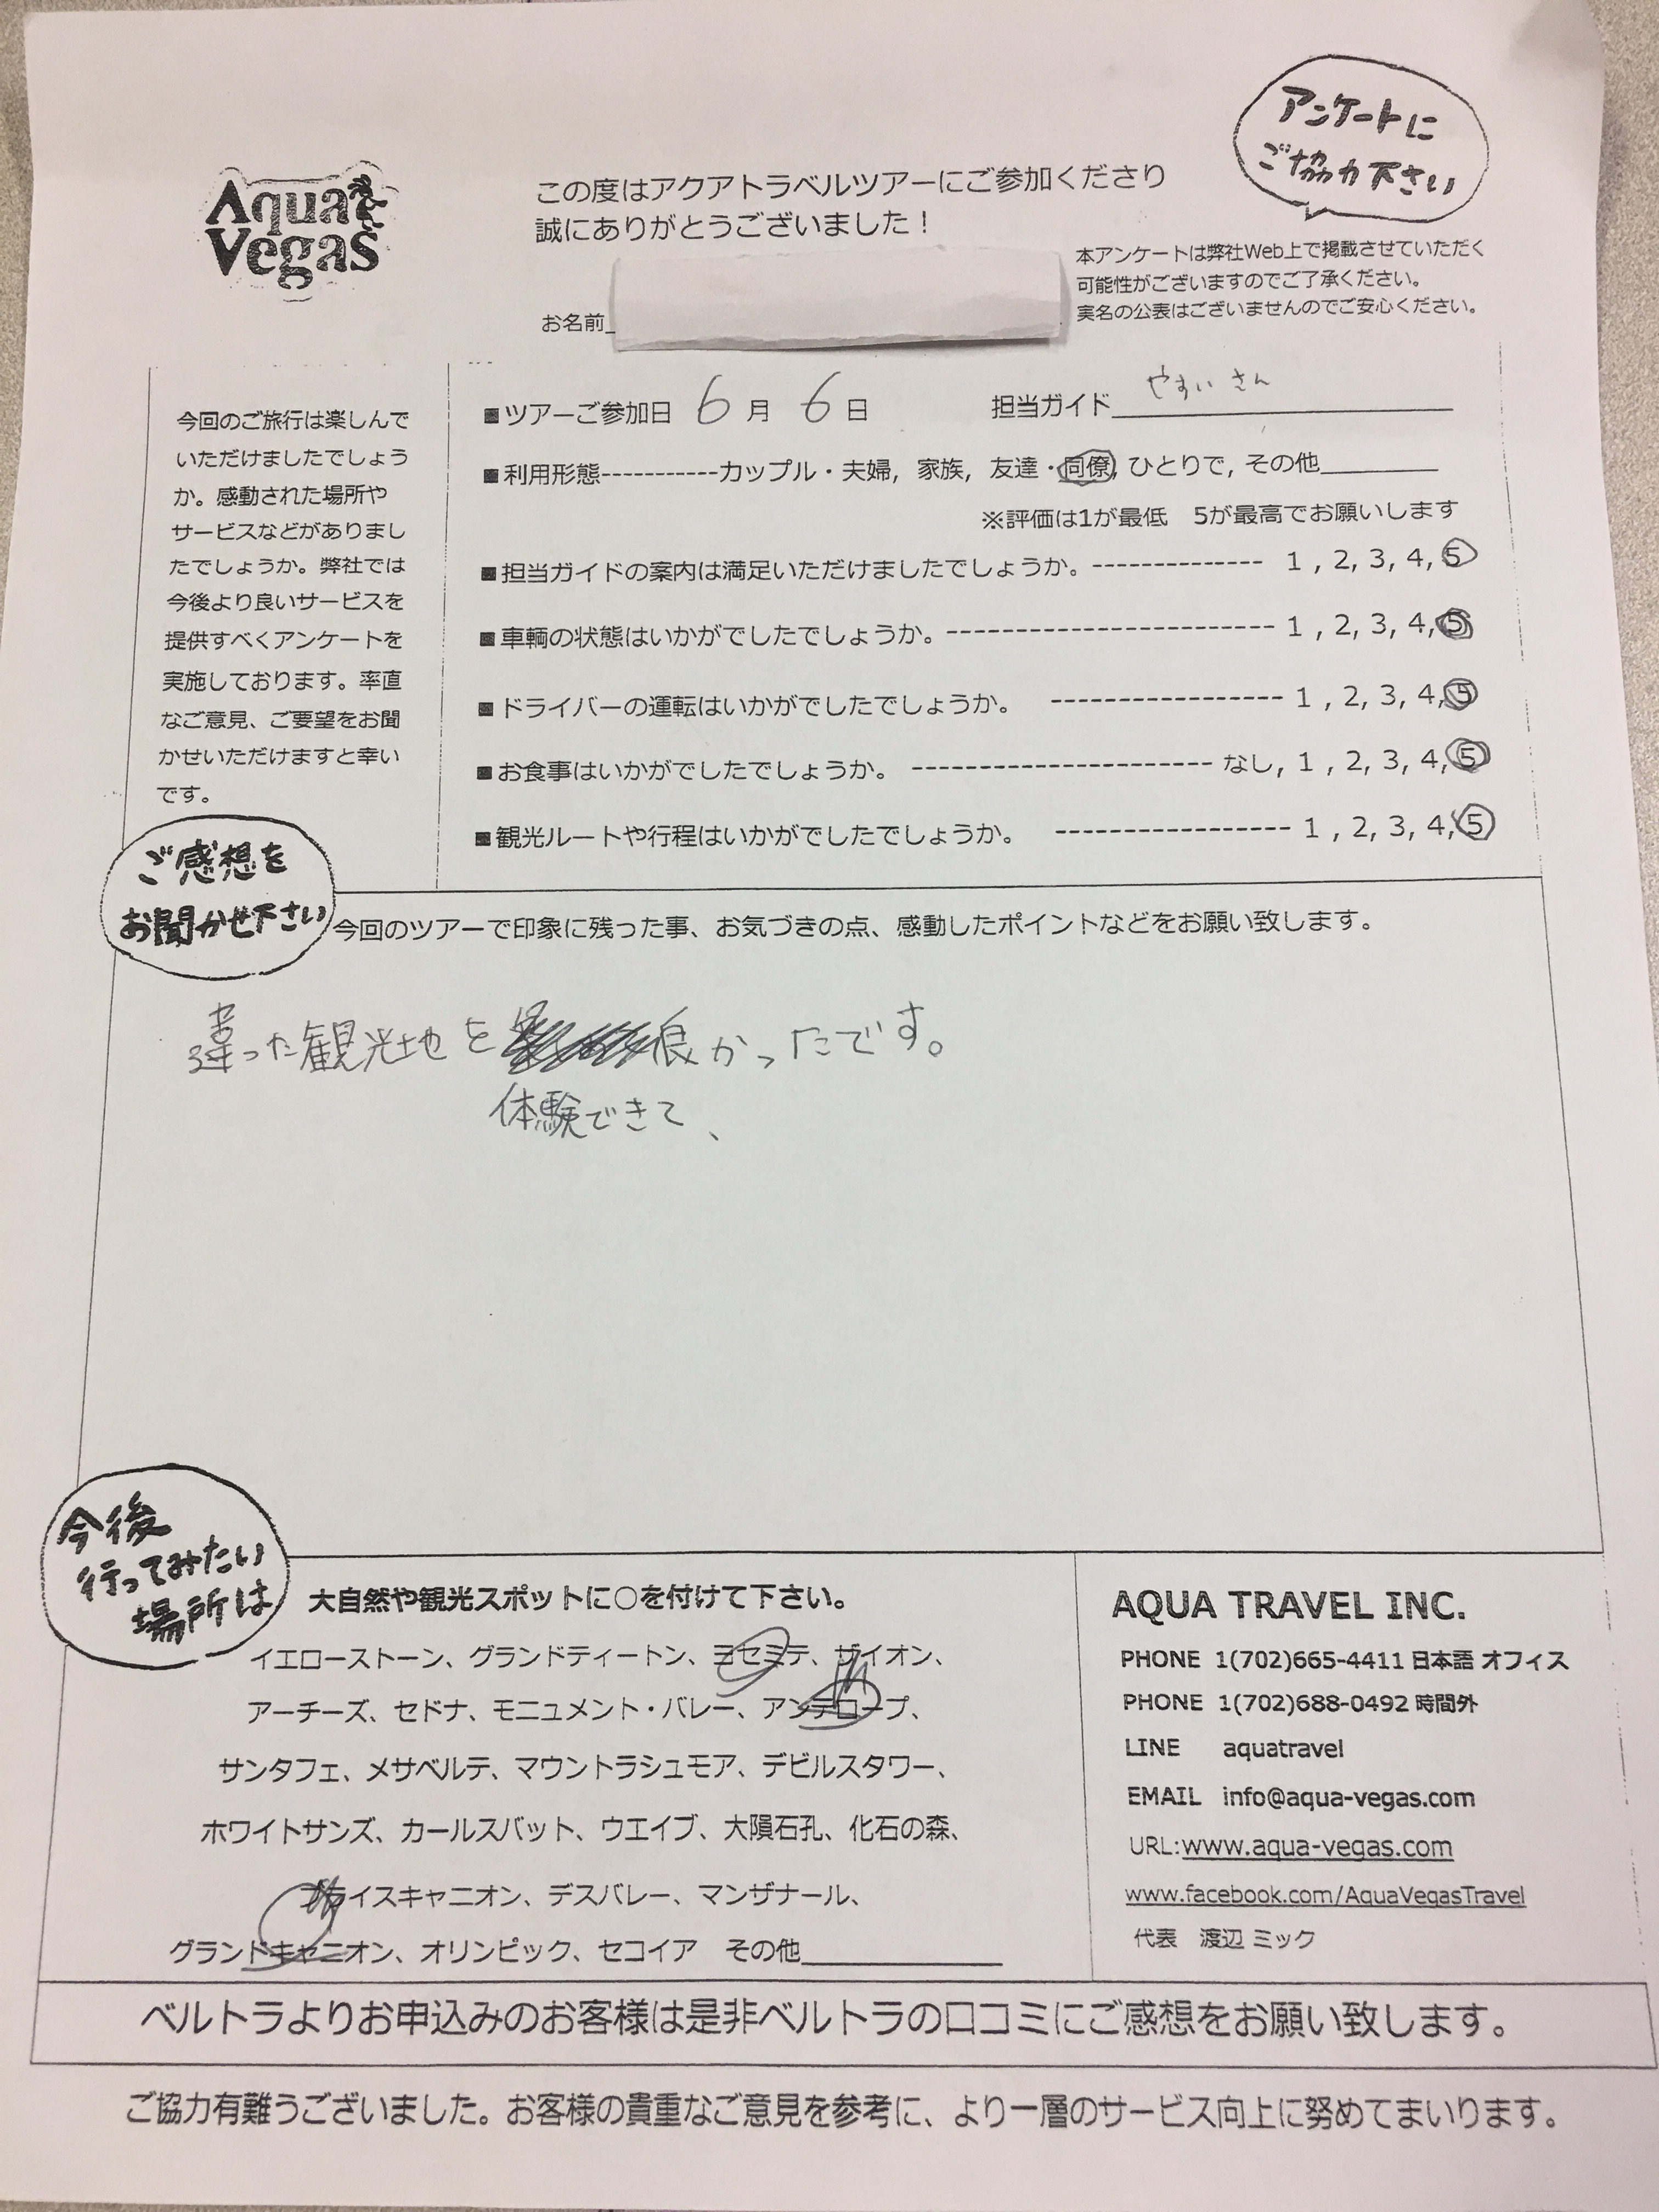 アンケートに
ご協力下さい
Aqua
Vegas
この度はアクアトラベルツアーにご参加くださり
誠にありがとうございました！
本アンケートは弊社Web上で掲載させていただく
可能性がございますのでご了承ください。
実名の公表はございませんのでご安心ください。
お名前
今回のご旅行は楽しんで
いただけましたでしょう
か。感動された場所や
サービスなどがありまし
たでしょうか。弊社では
今後より良いサービスを
提供すべくアンケートを
実施しております。率直
なご意見、ご要望をお聞
かせいただけますと幸い
です。
■ツアーご参加日 6月 6日 担当ガイド やすい さん
■利用形態-----------カップル・夫婦, 家族, 友達・同僚, ひとりで, その他
※評価は1が最低 5が最高でお願いします
■担当ガイドの案内は満足いただけましたでしょうか。-------------- 1 , 2, 3, 4, 5
■車輌の状態はいかがでしたでしょうか。--------------------------- 1 , 2, 3, 4, 5
■ドライバーの運転はいかがでしたでしょうか。 ------------------- 1 , 2, 3, 4, 5
■お食事はいかがでしたでしょうか。 ------------------------- なし, 1 , 2, 3, 4, 5
■観光ルートや行程はいかがでしたでしょうか。 ------------------- 1 , 2, 3, 4, 5
ご感想を
お聞かせ下さい
今回のツアーで印象に残った事、お気づきの点、感動したポイントなどをお願い致します。
違った観光地を良かったです。
体験できて、
今後
行ってみたい
場所は
大自然や観光スポットに○を付けて下さい。
イエローストーン、グランドティートン、ヨセミテ、ザイオン、
アーチーズ、セドナ、モニュメント・バレー、アンテロープ、
サンタフェ、メサベルテ、マウントラシュモア、デビルスタワー、
ホワイトサンズ、カールスバット、ウエイブ、大隕石孔、化石の森、
ブライスキャニオン、デスバレー、マンザナール、
グランドキャニオン、オリンピック、セコイア その他
AQUA TRAVEL INC.
PHONE 1(702)665-4411 日本語 オフィス
PHONE 1(702)688-0492 時間外
LINE aquatravel
EMAIL info@aqua-vegas.com
URL:www.aqua-vegas.com
www.facebook.com/AquaVegasTravel
代表 渡辺 ミック
ベルトラよりお申込みのお客様は是非ベルトラの口コミにご感想をお願い致します。
ご協力有難うございました。お客様の貴重なご意見を参考に、より一層のサービス向上に努めてまいります。